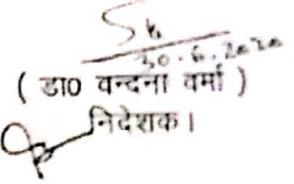 30.6.2020
( डा० वन्दना वर्मा )
निदेशक।